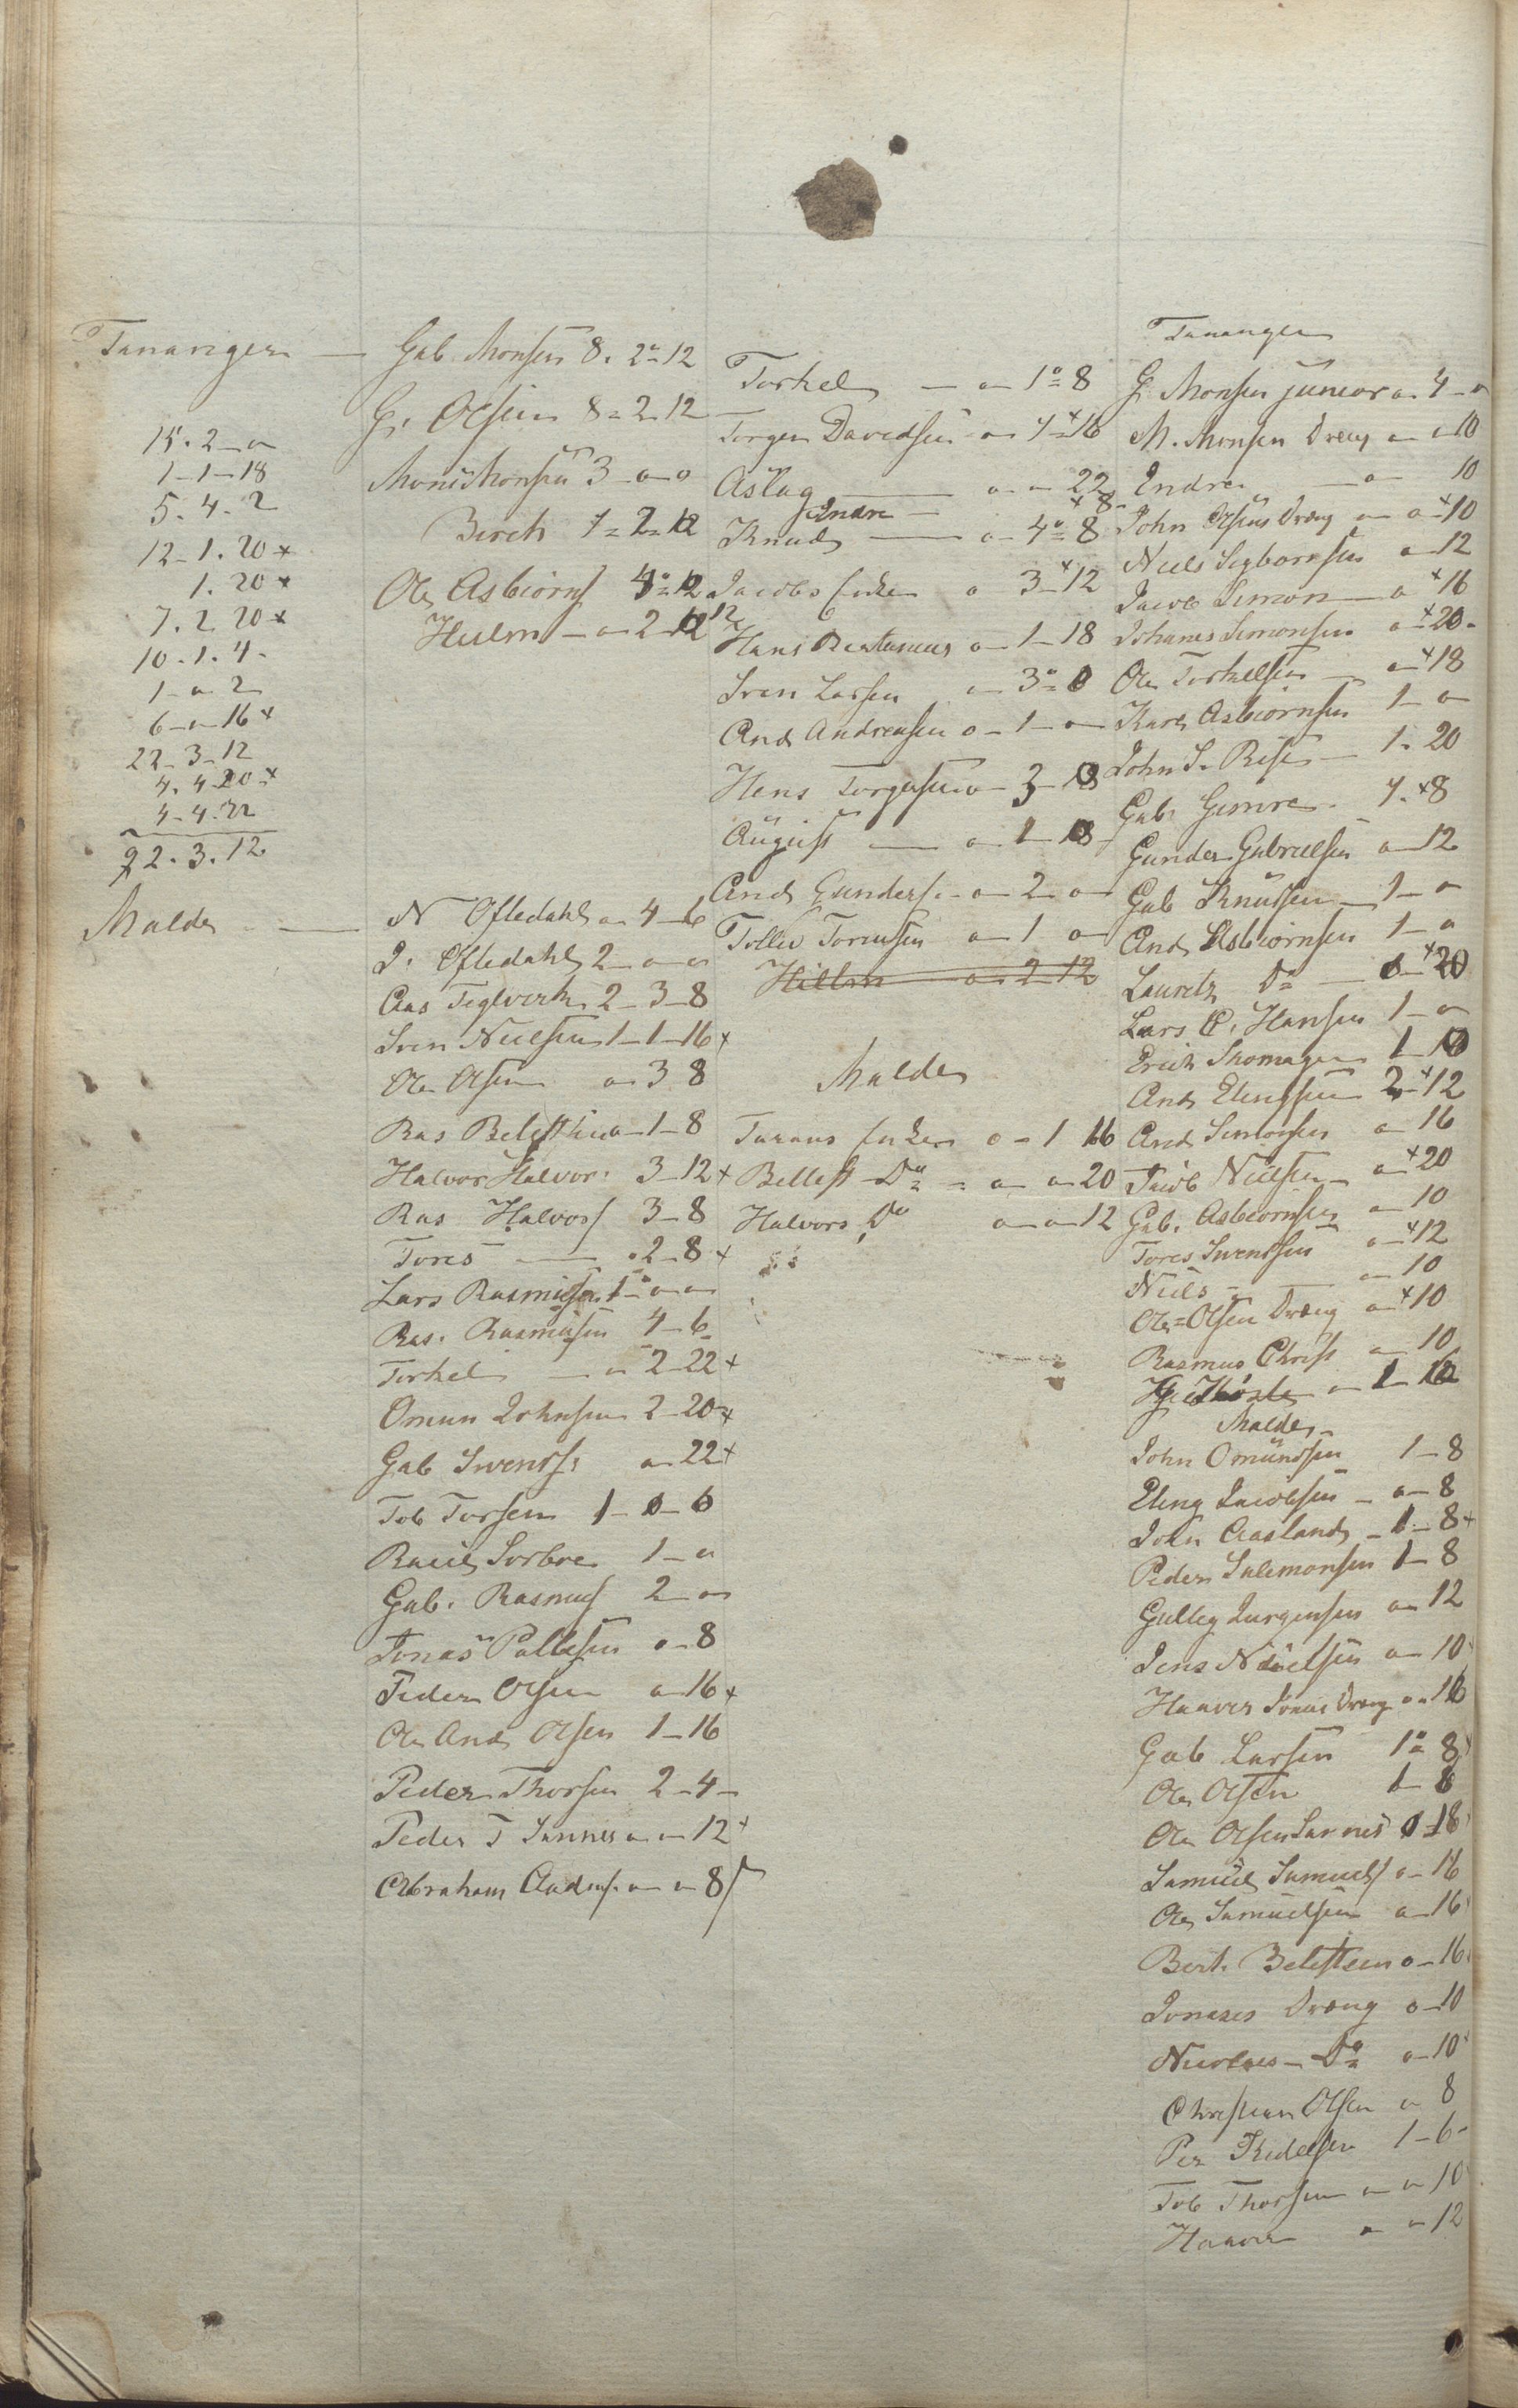 Tananger —
15. 2 — o
1 — 1 — 18
5. 4. 2
12 — 1. 20 x
1. 20 x
7. 2 20 x
10. 1. 4.
1 — o 2
6 — o — 16 x
22 — 3 — 12
4. 4 20 x
4 — 4. 22
92. 3. 12.
Malde —
Gab Monsen 8. 2 = 12
G. Olsen 8 = 2 12
Mons Monsen 3 — o — o
Birch 7 = 2 = 12
Ole Asbiörns 4 = 12
Hielm — o — 2 — 12
N Oftedahl o — 4 — 6
I. Oftedahl 2 — o — o
Aas Teglverk 2 — 3 — 8
Sven Nielsen 1 — 1 — 16 x
Ole Olsen o — 3 8
Ras 1 — 8
Halvor Halvor: 3 — 12 x
Ras Halvors 3 — 8
Tores — 2 — 8 x
Lars Rasmusen 1 — o — o
Ras. Rasmusen 4 — 6
Torkel — o 2 — 22 x
Omun Johnsen 2 — 20 x
Gab Svends: o — 22 x
Tob Torsen 1 — o — 6
Sorboe 1 — o
Gab. Rasmus 2 — o
Jonas Pallesen o — 8
Peder Olsen o — 16 x
Ole And Olsen 1 — 16
Peder Thorsen 2 — 4 —
Peder T Sannes o — o — 12 x
Abraham o — o — 8
Torkel — o — 1 = 8
Torger Davidsen o — 4 = 16
Aslag — o — o — 22
Endre — x 8 —
Knud — o — 4 = 8
Jacobs Enke o 3 — 12
Hans o — 1 — 18
Sven Larsen o — 3 = 0
And Andreasen o — 1 — o
Hans Torgersen o — 3 — 18
August — o — 1 — 18
And Gunders. — o — 2 — o
Tollev Torensen o — 1 o
Hielm o — 2 12
Malde
Enke o — 1 16
Do = o — o 20
Halvors Do o — o — 12
Tananger
G. Monsen junior o — 4 — o
M. Monsen Dreng o — o 10
Endre — o — 10
John Olsens Dreng o — o x 10
Niels Sigbornsen o — 12
Jacob Simon — o x 16
Johanes Simonsen o — x 20 —
Ole Torkelsen — o — x 18
Karl Asbiörnsen 1 — o
John S. Rise — 1. 20
Gab. Gimre. 4. x 8
Gunder Gabrielsen o — 12
Gab Knudsen — 1 — o
And Asbiörnsen 1 — o
Lauretz Do — o — x 20
Lars C. Hansen 1 — o
Erich Skomager 1 — 10
And Elingsen 2 — x 12
And Simonsen o — 16
Jacob Nielsen — o x 20
Gab. Asbiornsen — 10
Tores Svendsen o — x 12
Niels — o — 10
Ole = Olsen Dreng o — x 10
Rasmus Christ o — 10
o — 1 — 12
Malde —
John Omundsen 1 — 8
Eling Jacobsen — o — 8
John Aasland — 1 — 8 x
Peder Salemonsen 1 — 8
Gulleg Jurgensen o — 12
Jens Nielsen o — 10
Haaver Jonas Dreng o — 16
Gab Larsen 1 = 8
Ole Olsen 1 — 8
Ole Olsen Sannes 0 — 18
Samuel Samuels o — 16
Ole Samuelsen o — 16
Bert. o — 16
Jonases Dreng o — 10
Do o — 10
Christian Olsen o 8
Per 1 — 6 —
Tob Thorsen o — o 10
Haaver o — o 12